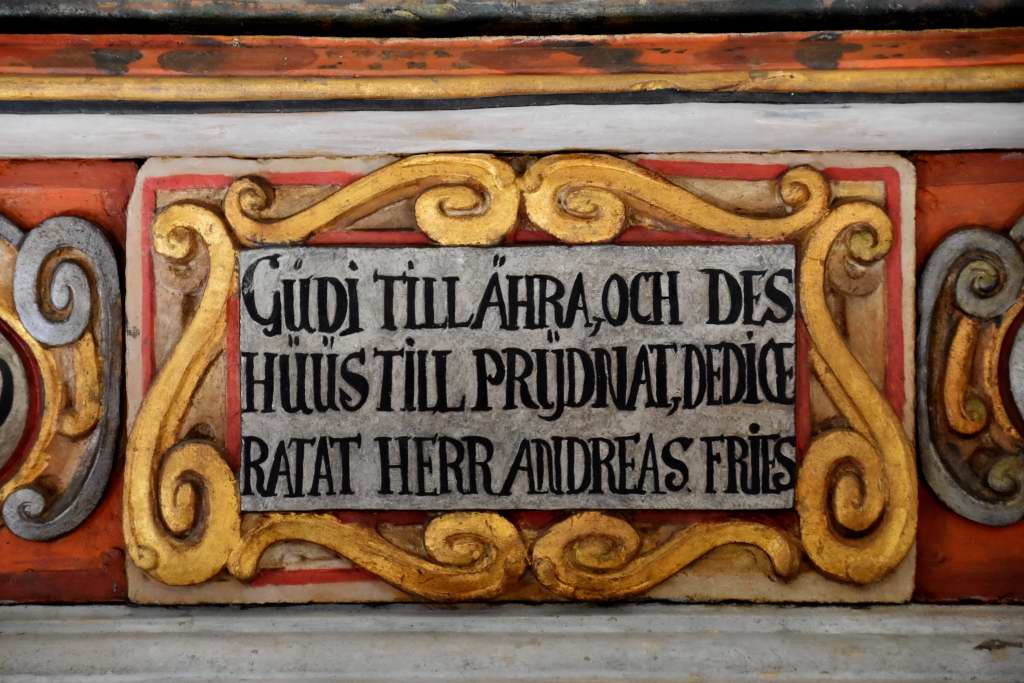 GÜDI TILL ÄHRA, OCH DES
HÜÜS TILL PRŸDNAT, DEDICE
RATAT HERR ANDREAS FRIES